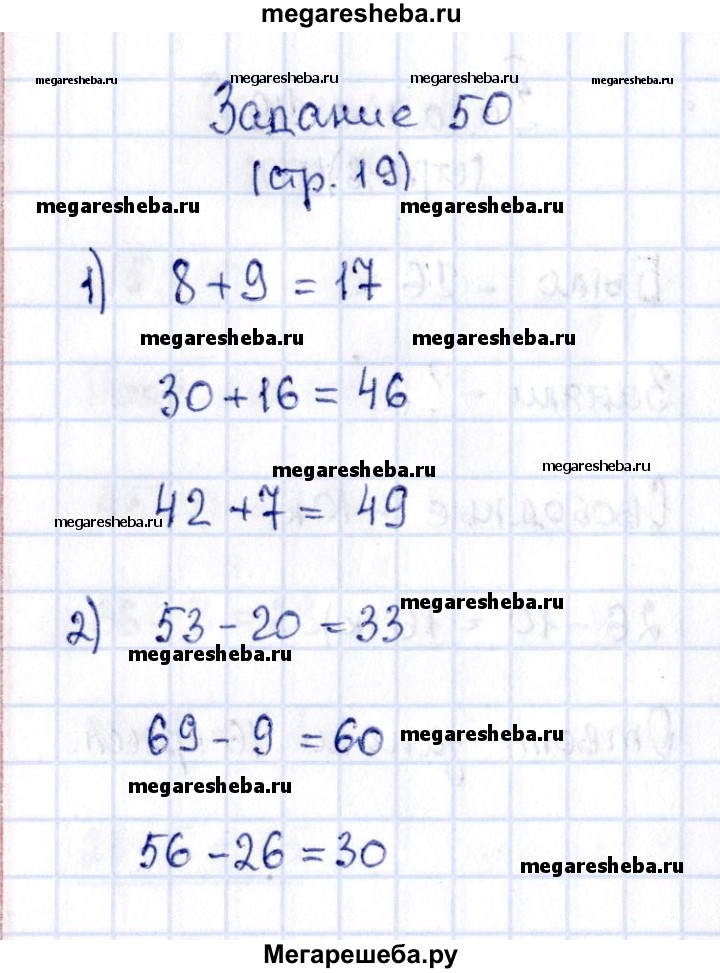 megaresheba.ru
megaresheba.ru megaresheba.ru megaresheba.ru megaresheba.ru
Задание 50
(стр. 19)
megaresheba.ru megaresheba.ru
1) 8 + 9 = 17
megaresheba.ru megaresheba.ru
30 + 16 = 46
megaresheba.ru megaresheba.ru
42 + 7 = 49
megaresheba.ru
megaresheba.ru
2) 53 - 20 = 33
megaresheba.ru
69 - 9 = 60
megaresheba.ru
megaresheba.ru
56 - 26 = 30
megaresheba.ru
Мегарешеба.ру